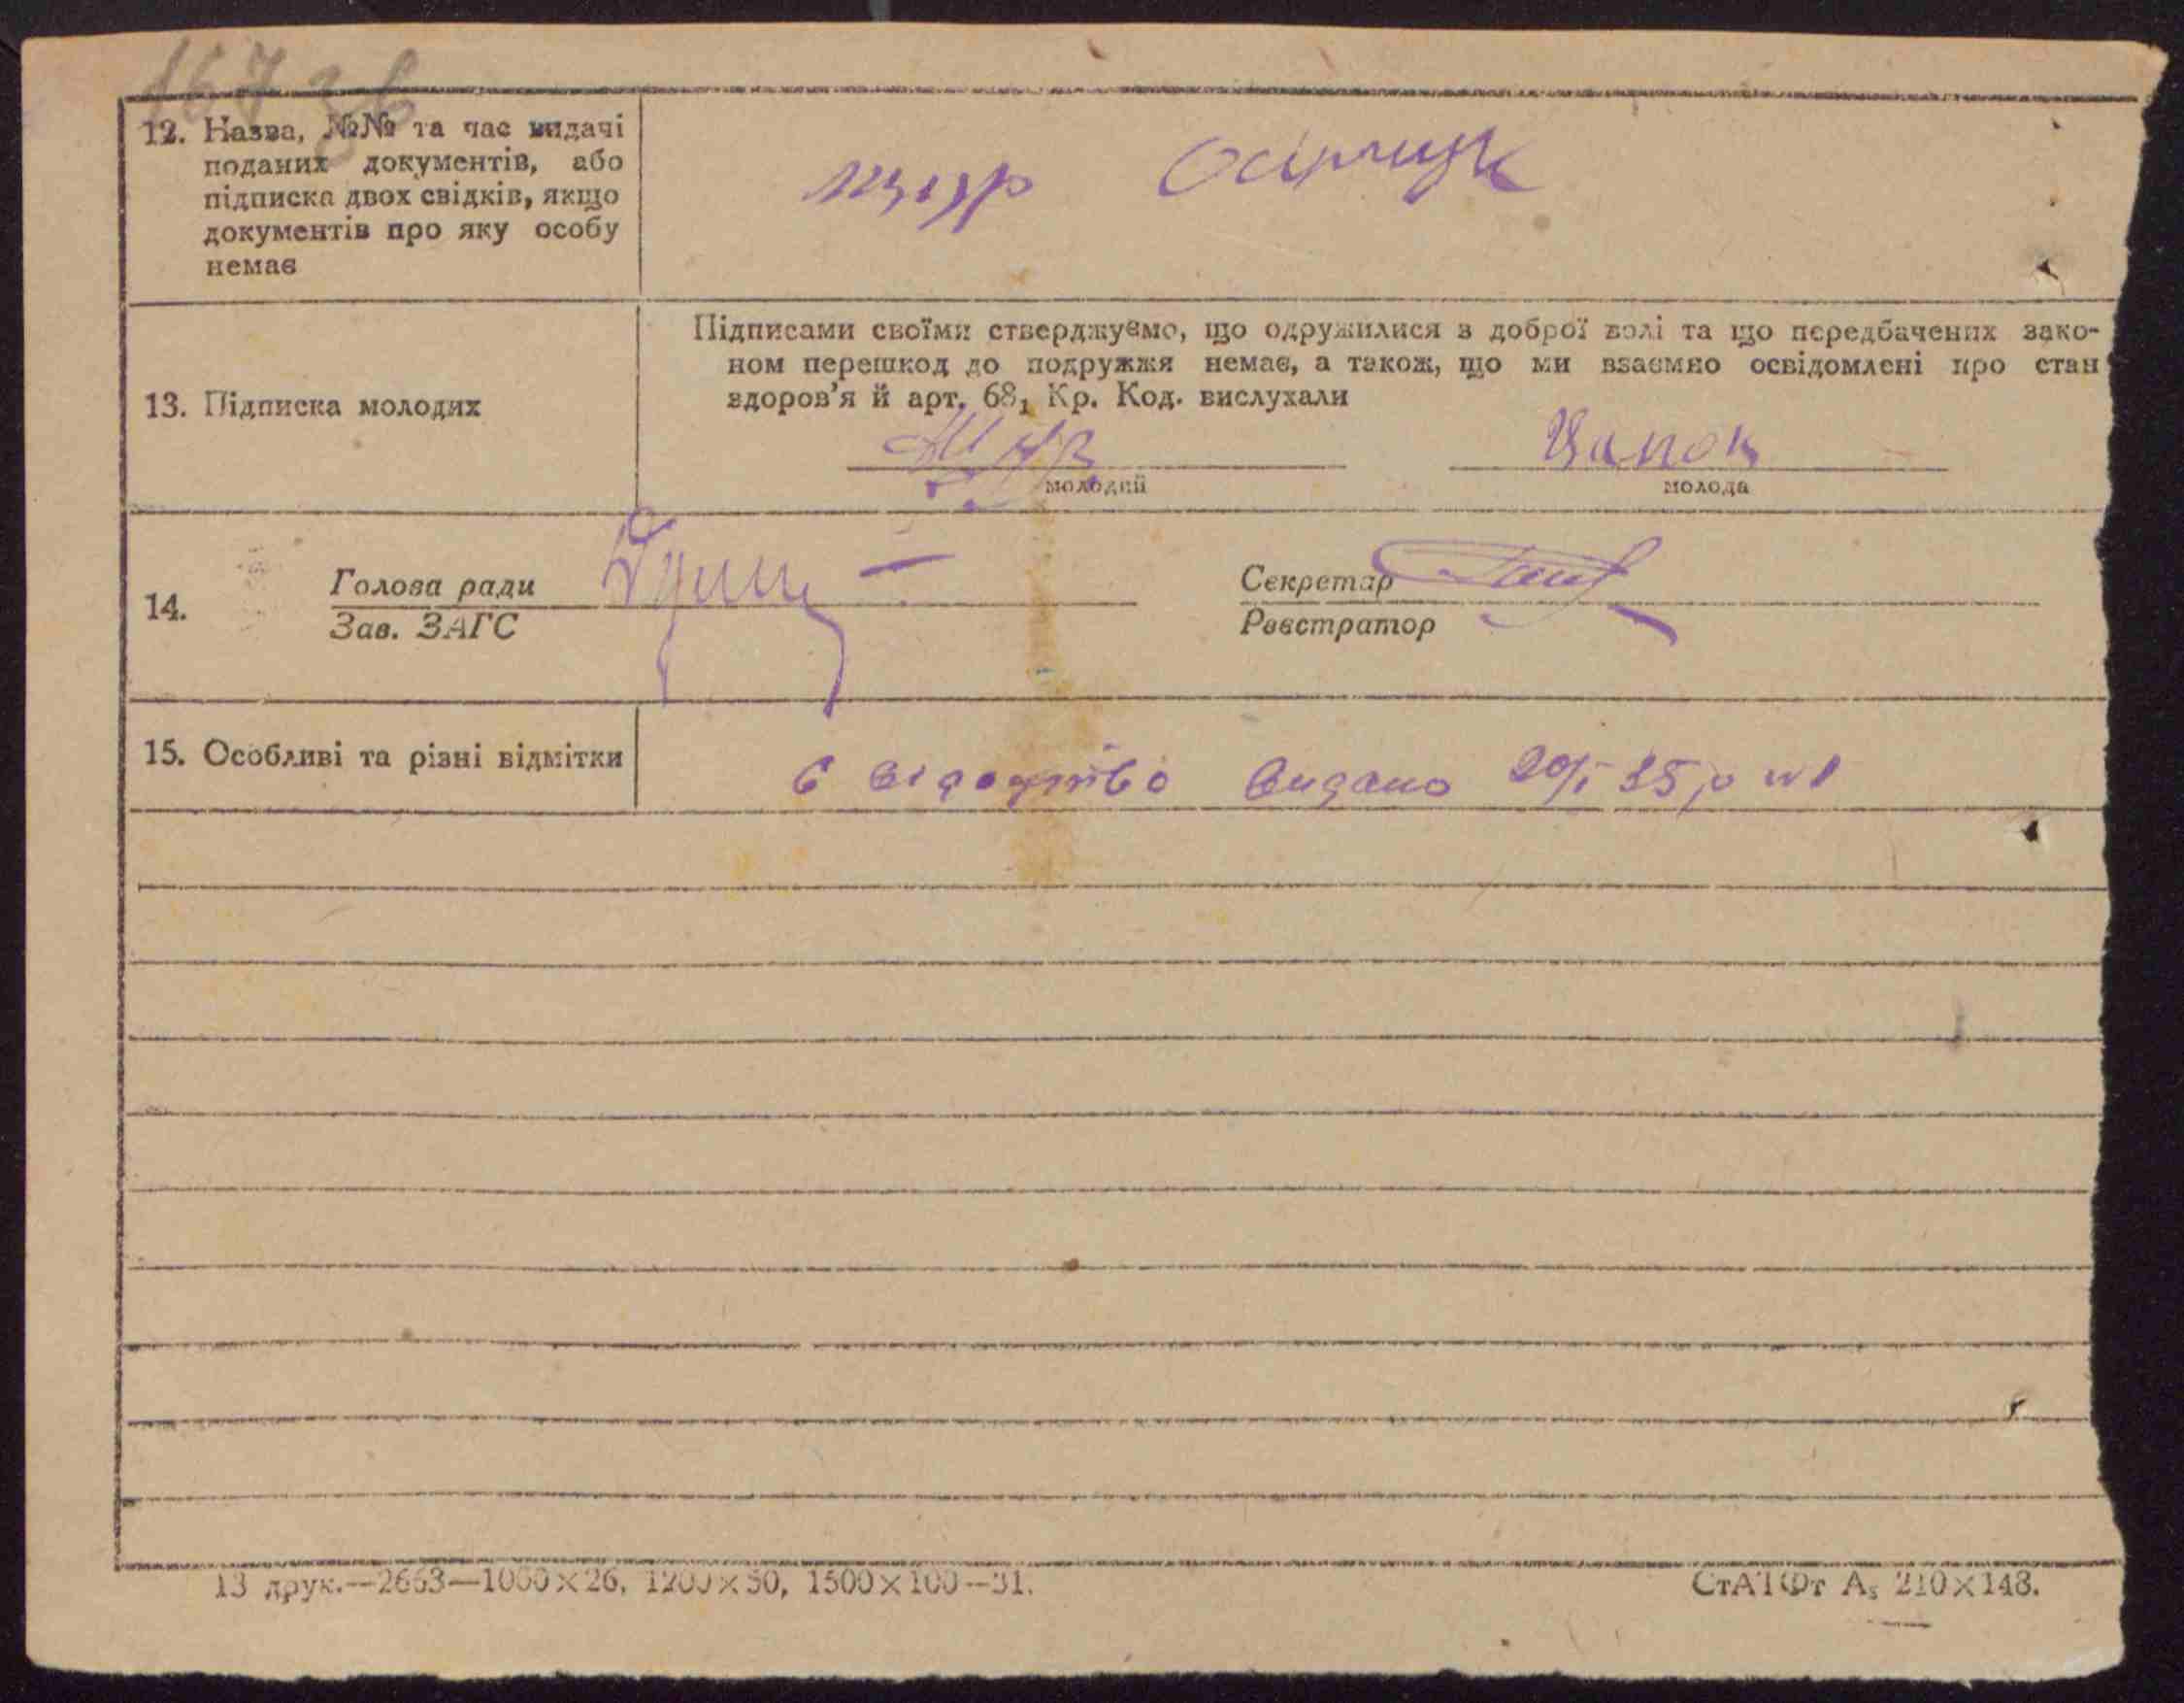 12. Назва, №№ та час видачі
поданих документів, або
підписка двох свідків, якщо
документів про яку особу
немає
13. Підписка молодих
Підписами своїми стверджуємо, що одружилися з доброї волі та що передбачених зако-
ном перешкод до подружжя немає, а також, що ми взаємно освідомлені про стан
здоров'я й арт. 68₁ Кр. Код. вислухали
Цапок
молодий молода
14. Голова ради Секретар
Зав. ЗАГС Реєстратор
15. Особливі та різні відмітки
видано 20/I 35 р №1
13 друк.—2663—1000×26, 1200×50, 1500×100—31. СтАТФт А₅ 210×148.